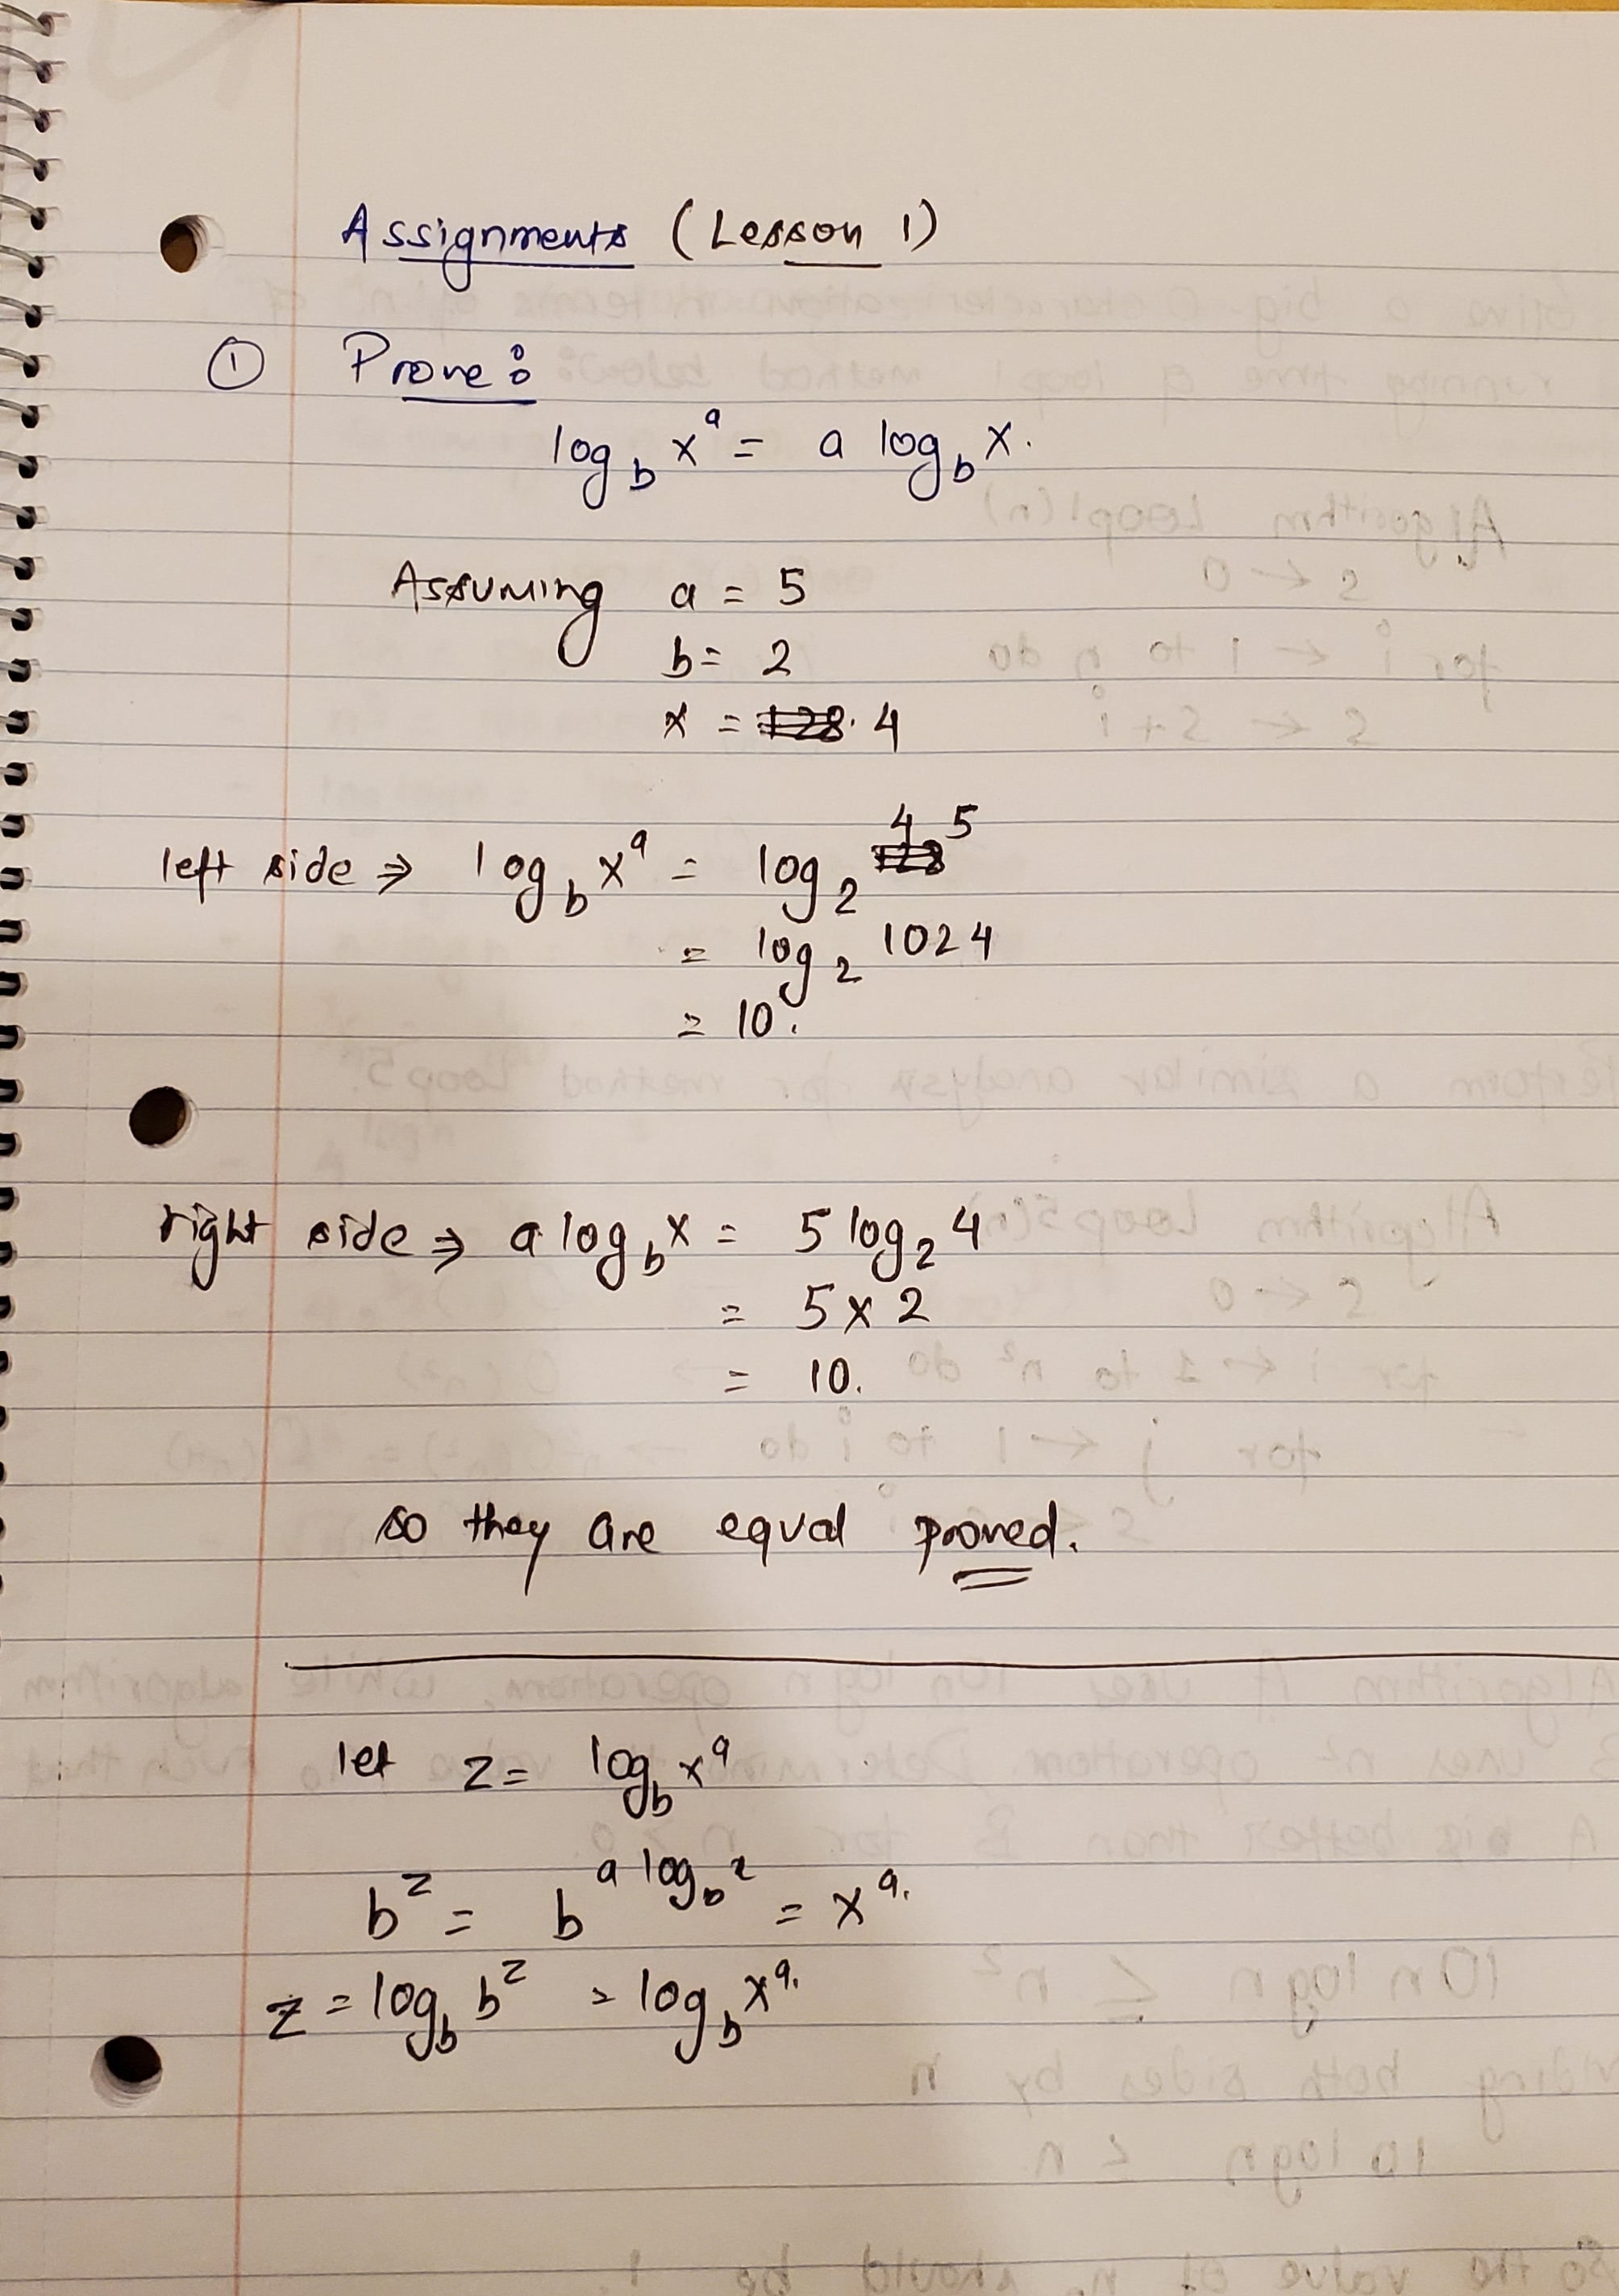 Assignments (Lesson 1)
① Prove:
log_b x^a = a log_b x.
Assuming a = 5
b = 2
x = 4
left side ⇒ log_b x^a = log_2 4^5
= log_2 1024
= 10.
right side ⇒ a log_b x = 5 log_2 4
= 5 x 2
= 10.
so they are equal proved.
let z = log_b x^a
b^z = b^{a log_b z} = x^a.
z = log_b b^z = log_b x^a.